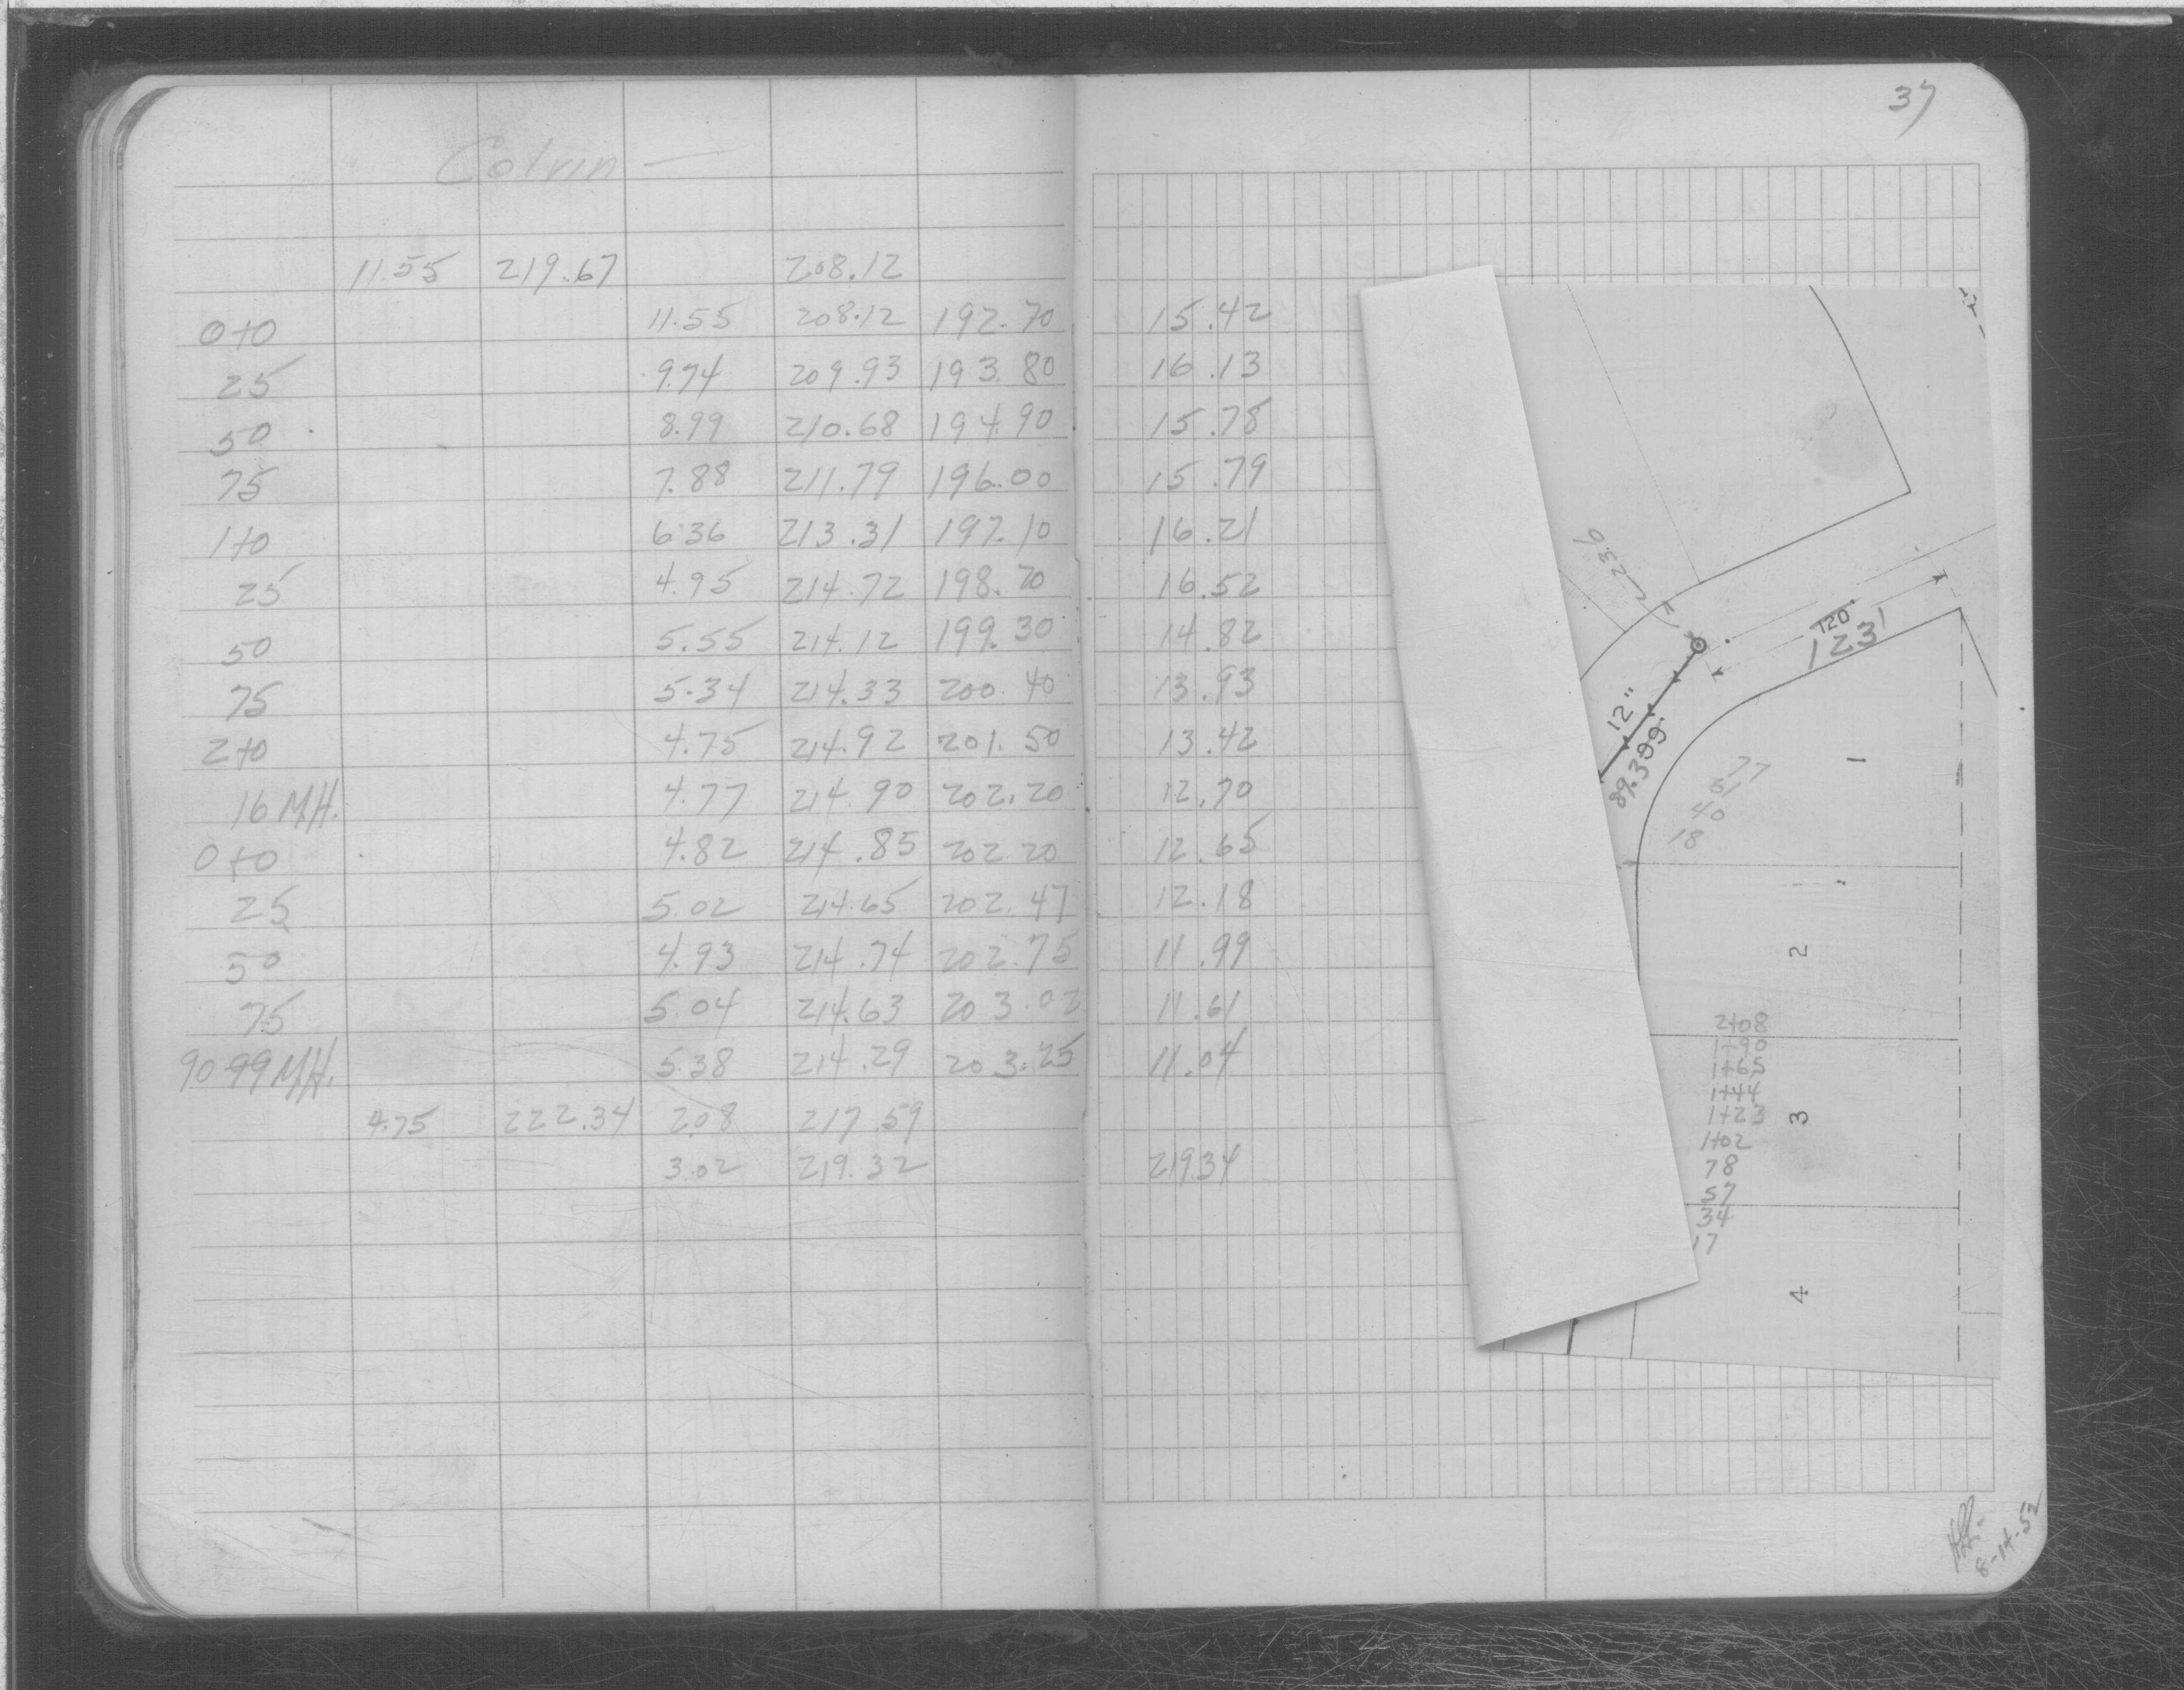 37
Colvin —
11.55 219.67 208.12
0+0 11.55 208.12 192.70 15.42
25 9.74 209.93 193.80 16.13
50 8.99 210.68 194.90 15.78
75 7.88 211.79 196.00 15.79
1+0 6.36 213.31 197.10 16.21
25 4.95 214.72 198.20 16.52
50 5.55 214.12 199.30 14.82
75 5.34 214.33 200.40 13.93
2+0 4.75 214.92 201.50 13.42
16 M.H. 4.77 214.90 202.20 12.70
0+0 4.82 214.85 202.20 12.65
25 5.02 214.65 202.47 12.18
50 4.93 214.74 202.75 11.99
75 5.04 214.63 203.02 11.61
90.99 M.H. 5.38 214.29 203.25 11.04
4.75 222.34 2.08 217.59
3.02 219.32 219.34
23.0
120
123'
12"
89.399
77
61
40
18
1
2
2+08
1+90
1+65
1+44
1+23
1+02
78
57
34
17
3
4
8-14-52